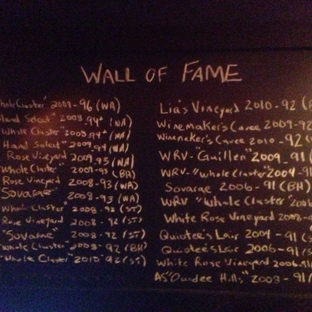 WALL OF FAME
Whole Cluster" 2009 - 96 (WA)
Hand Select" 2008 94+ (WA)
Whole Cluster" 2008 94+ (WA)
Hand Select" 2009 94 (WA)
Rose Vineyard 2009 93 (WA)
Whole Cluster" 2009 - 93 (BH)
Rose Vineyard 2008 - 93 (WA)
Sovarane" 2008 - 93 (WA)
Whole Cluster" 2008 - 93 (ST)
Rose Vineyard 2008 - 92 (ST)
"Sovarane" 2008 - 92 (ST)
Whole Cluster" 2008 - 92 (BH)
"Whole Cluster" 2010 - 92 (ST)
Lia's Vineyard 2010 - 92 (
Winemaker's Cuvee 2009 - 92
Winemaker's Cuvee 2010 - 92
WRV - Guillen" 2009 91 (
WRV - "Whole Cluster" 2004 - 91
Sovarane 2006 - 91 (BH)
WRV "Whole Cluster" 2006
White Rose Vineyard 2008 -
Quiotee's Lair 2009 - 91 (
Quiotee's Lair 2006 - 91 (
White Rose Vineyard 2006 - 91
AS "Dundee Hills," 2008 - 91